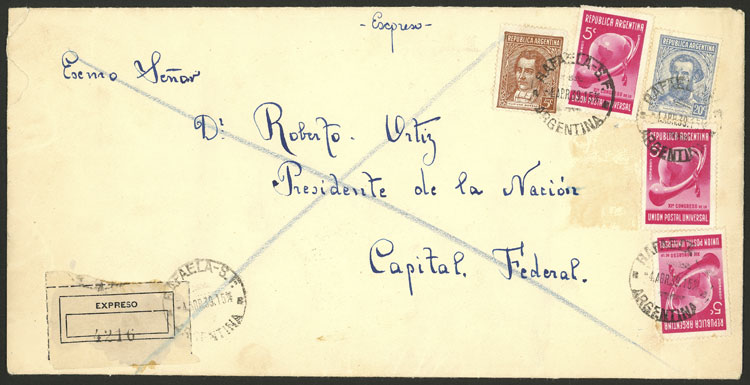 -Expreso-
Excmo Señor
Dr. Roberto Ortiz
Presidente de la Nación
Capital Federal.
REPUBLICA ARGENTINA
5c
REPUBLICA ARGENTINA
5c
UNION POSTAL UNIVERSAL
REPUBLICA ARGENTINA
20c
RAFAELA-S.F.
ARGENTINA
RAFAELA
ARGENTINA
5c
XIº CONGRESO DE LA
UNION POSTAL UNIVERSAL
RAFAELA-S.F.
-4.ABR.39.15
ARGENTINA
UNION POSTAL UNIVERSAL
REPUBLICA ARGENTINA
5c
RAFAELA-S.F.
ARGENTINA
EXPRESO
4216